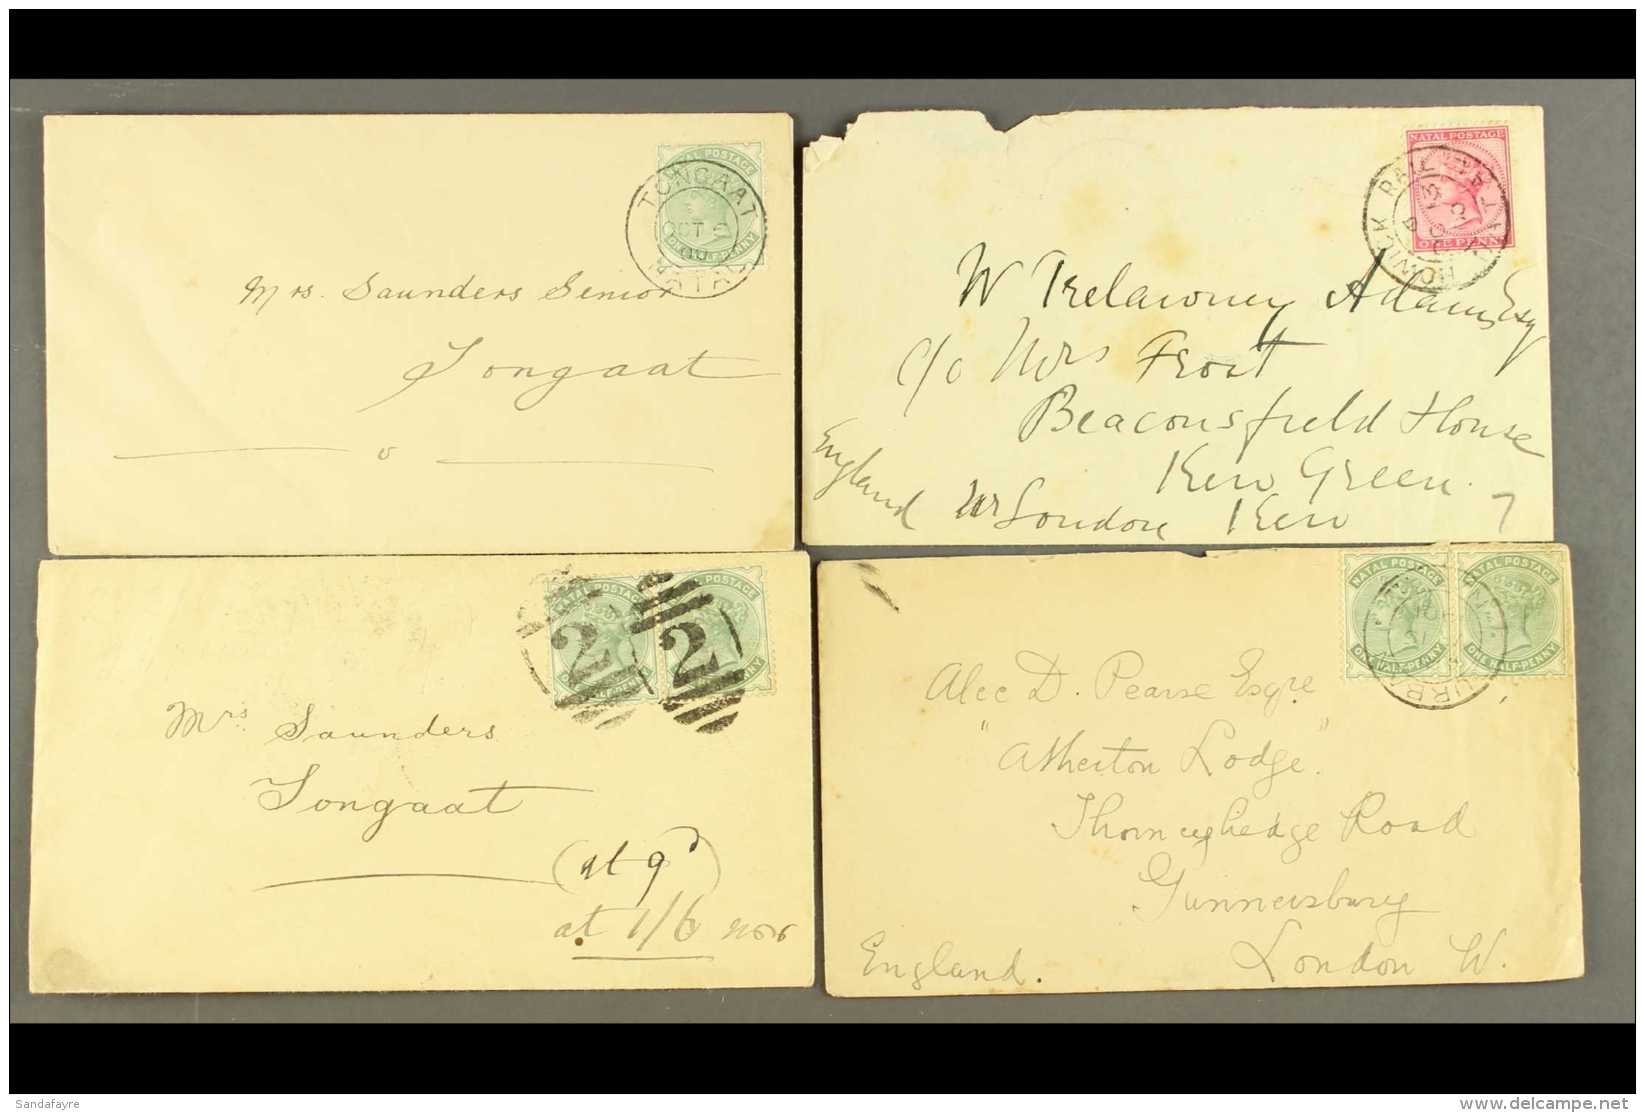 NATAL POSTAGE
TONGAAT
OCT
NATAL
Mrs. Saunders Senior
Tongaat
NATAL POSTAGE
ONE PENNY
HOWICK RAIL
W Trelawney Adams, Esq
c/o Mrs Frost
Beaconsfield House
Kew Green.
England nr London Kew 7
NATAL POSTAGE
ONE HALF-PENNY
2
NATAL POSTAGE
ONE HALF-PENNY
2
Mrs. Saunders
Tongaat
(at 9d)
at 1/6
NATAL POSTAGE
ONE HALF-PENNY
NATAL POSTAGE
ONE HALF-PENNY
DURBAN
Alec D. Pearse Esqre
"Atherton Lodge".
Road
Gunnersbury
England. London W.
Sandafayre
delcampe.net